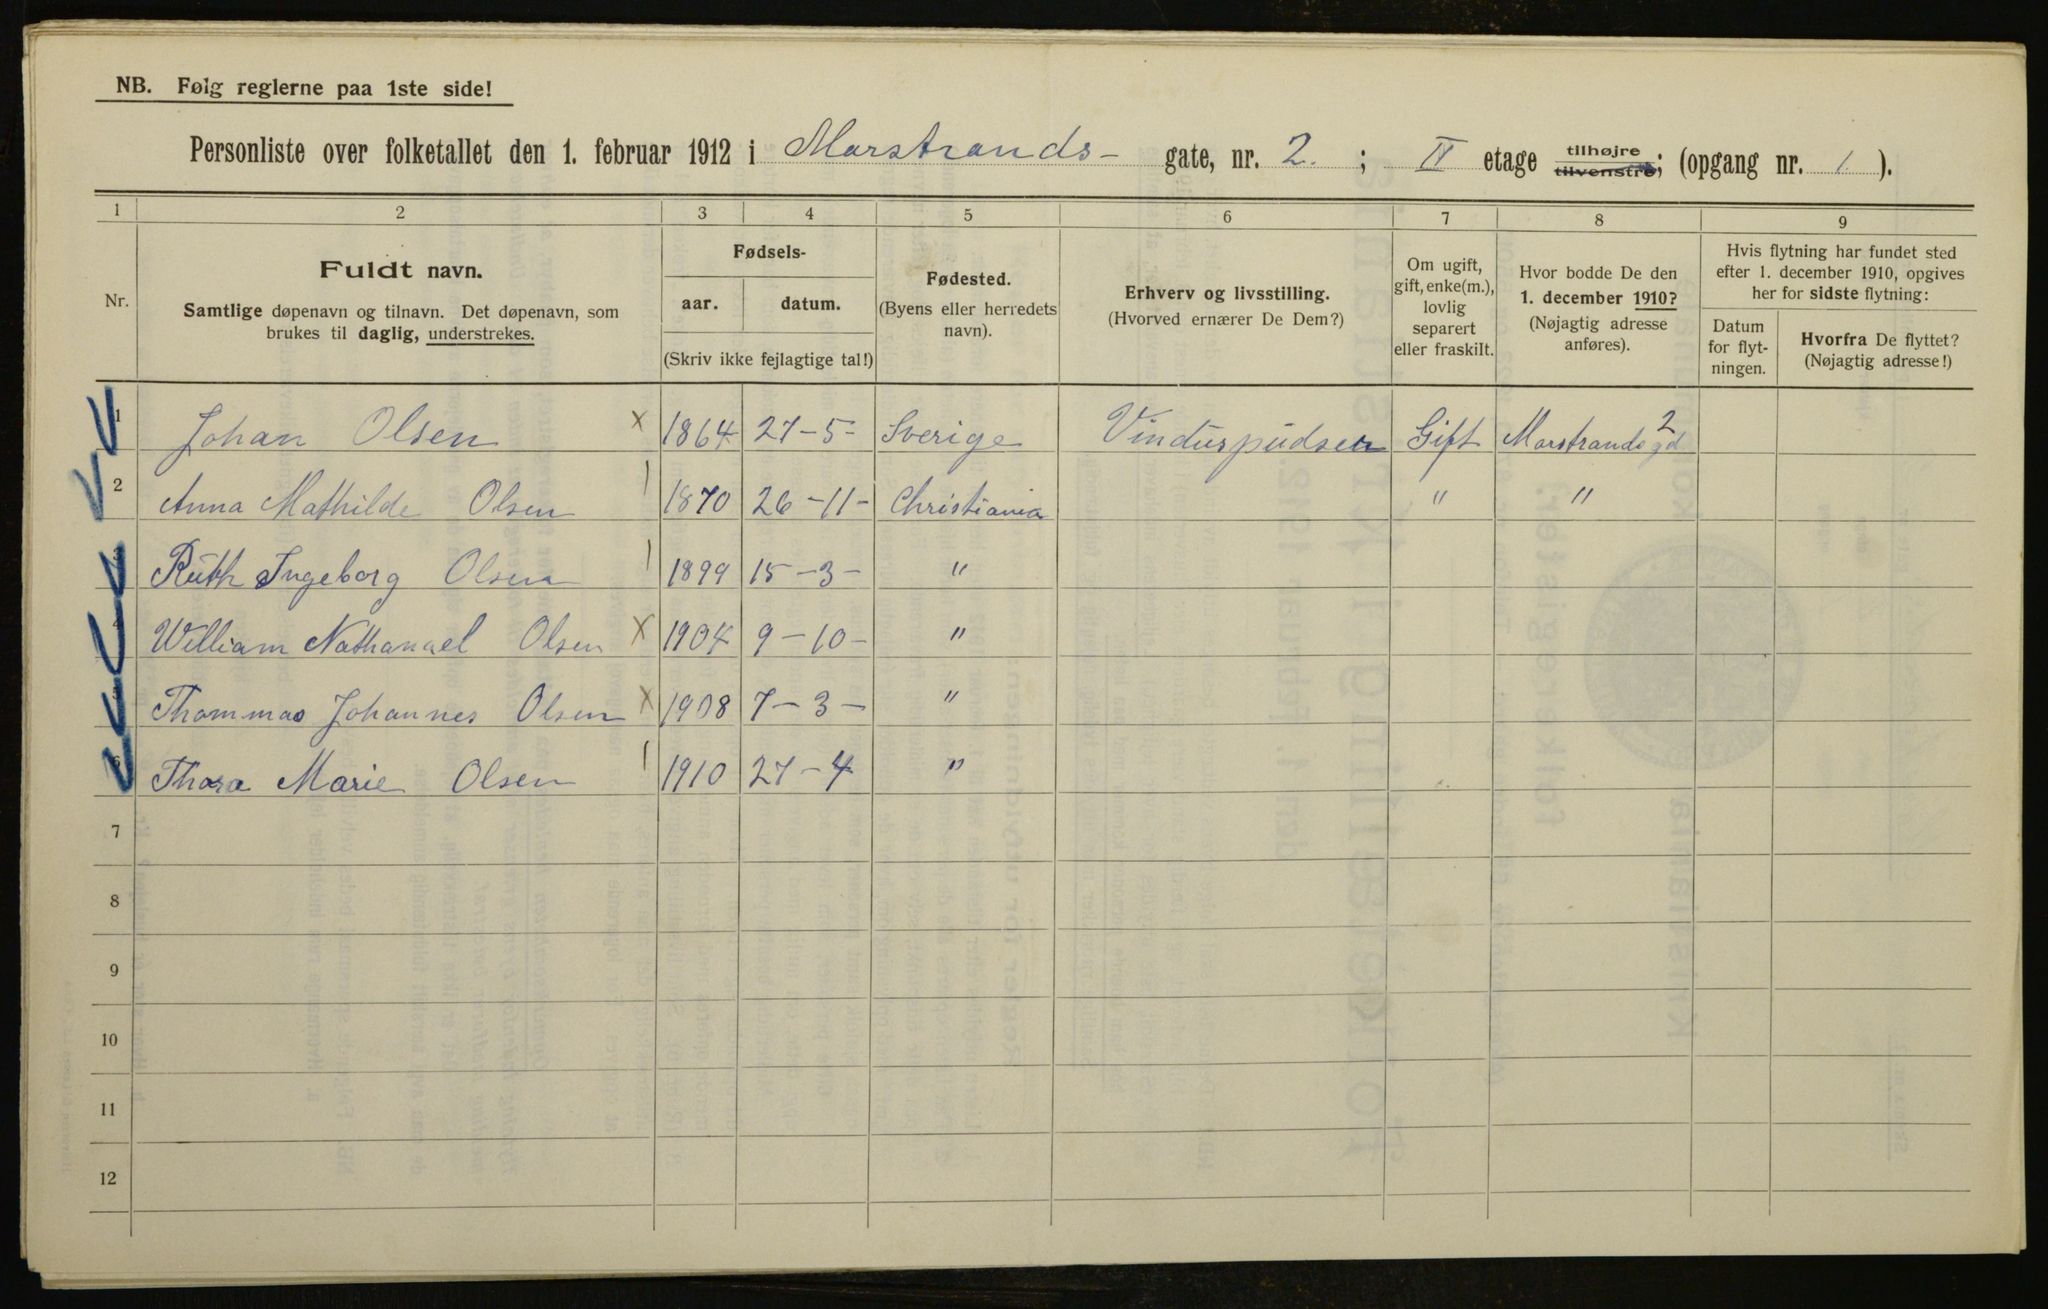 NB. Følg reglerne paa 1ste side!
Personliste over folketallet den 1. februar 1912 i Marstrands- gate, nr. 2. ; IV etage tilhøjre tilvenstre; (opgang nr. 1 ).
1 2 3 4 5 6 7 8 9
Nr.
Fuldt navn.
Samtlige døpenavn og tilnavn. Det døpenavn, som
brukes til daglig, understrekes.
Fødsels-
aar. datum.
(Skriv ikke fejlagtige tal!)
Fødested.
(Byens eller herredets
navn).
Erhverv og livsstilling.
(Hvorved ernærer De Dem?)
Om ugift,
gift, enke(m.),
lovlig
separert
eller fraskilt.
Hvor bodde De den
1. december 1910?
(Nøjagtig adresse
anføres).
Hvis flytning har fundet sted
efter 1. december 1910, opgives
her for sidste flytning:
Datum
for flyt-
ningen.
Hvorfra De flyttet?
(Nøjagtig adresse!)
1 Johan Olsen x 1864 27-5- Sverige Vinduspudser Gift Marstrandsgd 2
2 Anna Mathilde Olsen 1 1870 26-11- Christiania " "
3 Ruth Ingeborg Olsen 1 1899 15-3- "
4 William Nathanael Olsen x 1904 9-10- "
5 Thommas Johannes Olsen x 1908 7-3- "
6 Thora Marie Olsen 1 1910 27-4 "
7
8
9
10
11
12